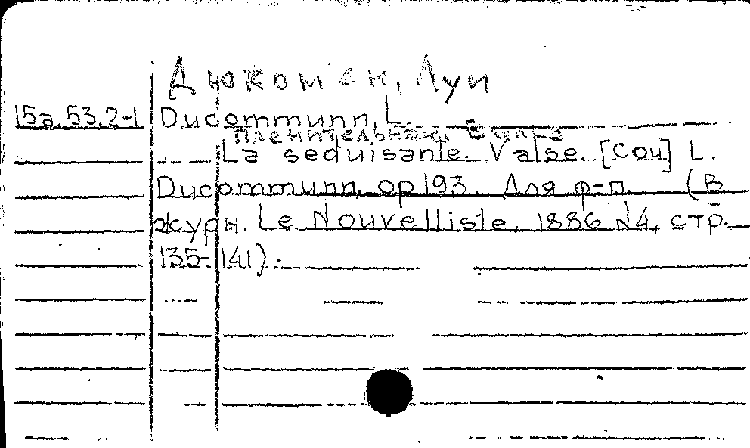 Дюкомен, Луи
15а.53.2-1 Ducommunn, L.
Пленительная. Вальс
La seduisante. Valse. [Соч] L.
Ducommunn, op 193. Для ф-п. (В
журн. Le Nouvelliste, 1886 N4, стр.
135-141).